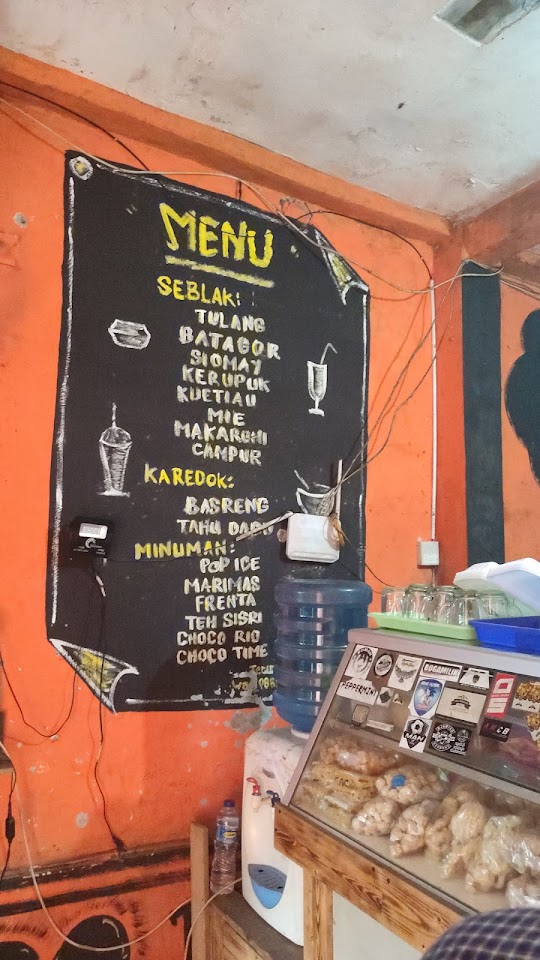 MENU
SEBLAK:
TULANG
BATAGOR
SIOMAY
KERUPUK
KUETIAU
MIE
MAKARONI
CAMPUR
KAREDOK:
BASRENG
TAHU
MINUMAN:
POP ICE
MARIMAS
FRENTA
TEH SISRI
CHOCO RIO
CHOCO TIME
PEPPERMINT
MAN
CB